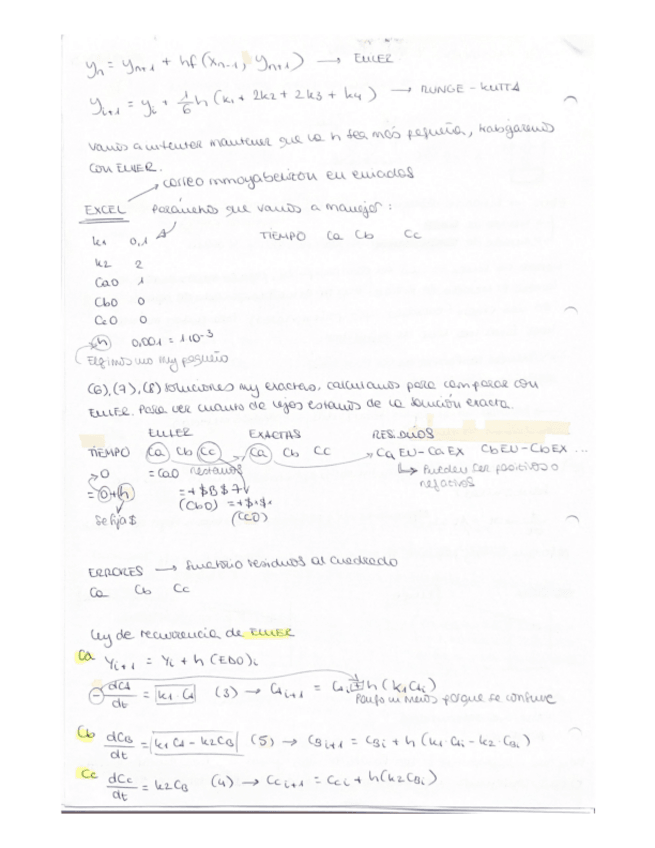 yn = yn+1 + hf (xn-1, yn+1) → EULER
yi+1 = yi + 1/6 h (k1 + 2k2 + 2k3 + k4) → RUNGE-KUTTA
vamos a intentar mantener que la h sea más pequeña, trabajaremos
con EULER.
→ correo inmoyabelizon en enviados
EXCEL Parámetros que vamos a manejar:
k1 0,1 TIEMPO Ca Cb Cc
k2 2
Ca0 1
Cb0 0
Cc0 0
h 0,001 = 1·10-3
Elegimos uno muy pequeño
(6), (7), (8) soluciones muy exactas, calculamos para comparar con
EULER. Para ver cuanto de lejos estamos de la solución exacta.
EULER EXACTAS RESIDUOS
TIEMPO Ca Cb Cc Ca Cb Cc → Ca EU - Ca EX Cb EU - Cb EX ...
0 = Ca0 restamos ↳ Pueden ser positivos o
negativos
= 0+h = +$B$7
(Cb0) = +$·$·
(Cc0)
se fija $
ERRORES → sumatorio residuos al cuadrado
Ca Cb Cc
Ley de recurrencia de EULER
Ca yi+1 = yi + h (EDO)i
- dCA/dt = k1·CA (3) → CAi+1 = CAi - h (k1 CAi)
Pongo un menos porque se consume
Cb dCB/dt = k1 CA - k2 CB (5) → CBi+1 = CBi + h (k1·CAi - k2·CBi)
Cc dCc/dt = k2 CB (4) → CCi+1 = CCi + h (k2 CBi)